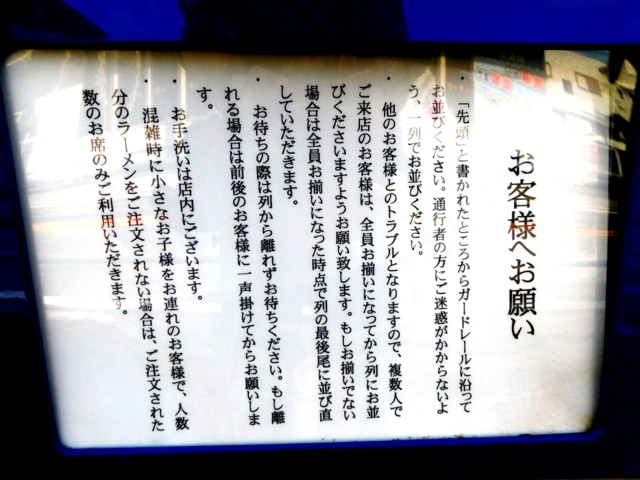 お客様へお願い
・「先頭」と書かれたところからガードレールに沿って
お並びください。通行者の方にご迷惑がかからないよ
う、一列でお並びください。
・他のお客様とのトラブルとなりますので、複数人で
ご来店のお客様は、全員お揃いになってから列にお並
びくださいますようお願い致します。もしお揃いでない
場合は全員お揃いになった時点で列の最後尾に並び直
していただきます。
・お待ちの際は列から離れずお待ちください。もし離
れる場合は前後のお客様に一声掛けてからお願いしま
す。
・お手洗いは店内にございます。
・混雑時に小さなお子様をお連れのお客様で、人数
分のラーメンをご注文されない場合は、ご注文された
数のお席のみご利用いただきます。